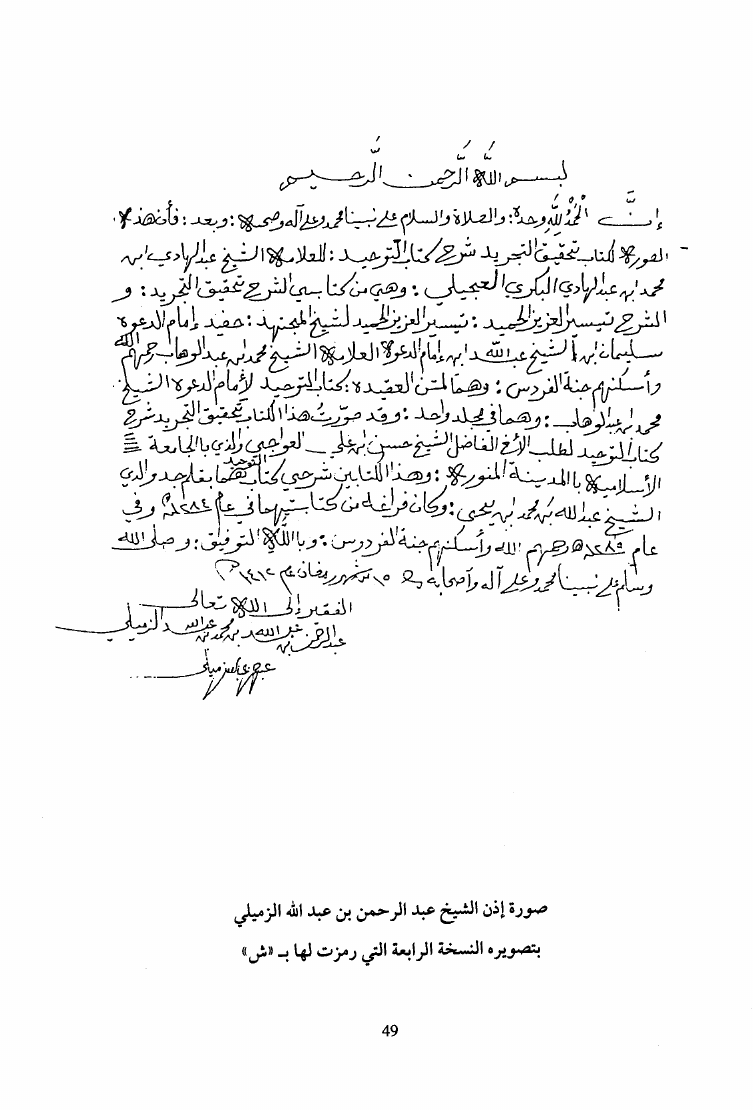 بسم الله الرَّحمن الرَّحيم
إنَّ الحمدُ للهِ وحدة: والصلاة والسلام على نبينا محمد وعلى آله وصحبه: وبعد: فأن هذه
الصورة لكتاب تحقيق التجريد شرح كتاب التوحيد: للعلامة الشيخ عبد الهادي ابن
محمد ابن عبد الهادي البكري العجيلي: وهي من كتابي الشرح تحقيق التجريد: و
الشرح تيسير العزيز الحميد: تيسير العزيز الحميد لشيخ المجتهد: حفيد إمام الدعوة
سليمان ابن الشيخ عبد الله ابن إمام الدعوة العلامة الشيخ محمد ابن عبد الوهاب رحمهم الله
وأسكنهم جنة الفردس: وهما لمتن العقيدة: كتاب التوحيد لأمام الدعوة الشيخ
محمد ابن عبد الوهاب: وهما في مجلد واحد: وقد صوّرتُ هذا الكتاب تحقيق التجريد شرح
كتاب التوحيد لطلب الأخ الفاضل الشيخ حسن ابن علي العواجي والذي بالجامعة
الأسلامية باالمدينة المنورة: وهذا الكتابين شرحي كتاب التوحيد بقلم جد والدي
الشيخ عبد الله بن محمد ابن يحيى: وكان فراغه من كتابتيهما في عام ١٢٨٤ه وفي
عام ١٢٨٩ه رحمهم الله وأسكنهم جنة الفردوس: وبا الله التوفيق: وصلى الله
وسلم على نبينا محمد وعلى آله وأصحابه ١٥ شهر رمضان عام ١٤١٢ه
الفقير إلى الله تعالى
عبد الرحمن بن عبد الله بن محمد بن عبد الله الزميلي
صورة إذن الشيخ عبد الرحمن بن عبد الله الزميلي
بتصويره النسخة الرابعة التي رمزت لها بـ «ش»
49